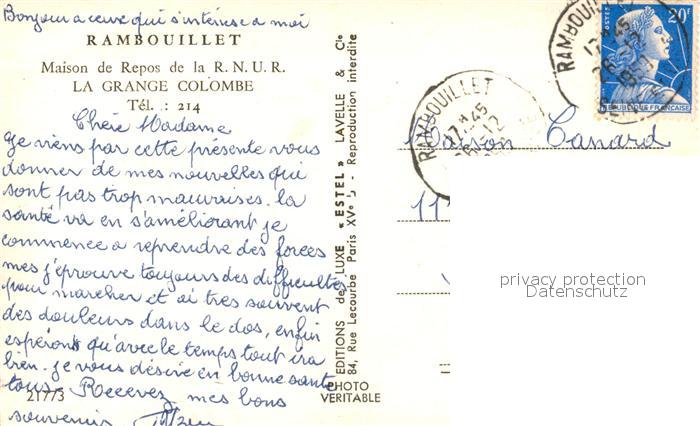 Bonjour a ceux qui s'intéresse a moi
RAMBOUILLET
Maison de Repos de la R. N. U. R.
LA GRANGE COLOMBE
Tél. : 214
Chère Madame
Je viens par cette présente vous
donner de mes nouvelles qui
sont pas trop mauvaises. la
santé va en s'améliorant je
commence a reprendre des forces
mes j'éprouve toujours des difficultés
pour marcher et ai très souvent
des douleurs dans le dos, enfin
espérons qu'avec le temps tout ira
bien. je vous désire en bonne santé
tous. Recevez mes bons
souvenirs
21773
EDITIONS de LUXE « ESTEL » LAVELLE & Cie
84, Rue Lecourbe Paris XVe - Reproduction interdite
PHOTO
VERITABLE
RAMBOUILLET
17H45
26-12
RAMBOUILLET
17H45
POSTES
20F
REPUBLIQUE FRANÇAISE
Maison Canard
11
privacy protection
Datenschutz